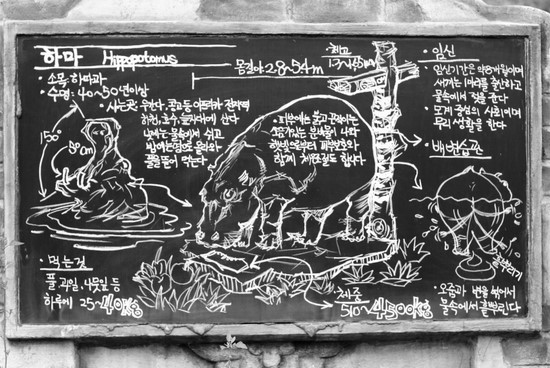 하마 Hippopotamus
• 소목 하마과
• 수명: 40~50년이상
• 사는곳: 우간다, 콩고등 아프리카 전지역
하천, 호수, 늪지대에 산다
낮에는 물속에서 쉬고
밤에는 땅으로 올라와
풀을 뜯어 먹는다
150°
50cm
• 먹는것
풀, 과일, 나뭇잎 등
하루에 25~40kg
몸길이 2.8~5.4m
체고
• 피부에는 붉고 끈적이는
소금기있는 분비물이 나와
햇빛으로부터 피부보호와
함께 체온조절도 합니다.
• 체중
510~4500kg
• 임신
임신기간은 약 8개월이며
새끼는 1마리를 출산하고
물속에서 젖을 준다
무리생활을 한다
• 배변습관
• 오줌과 변을 섞어서
물속에서 흩뿌린다